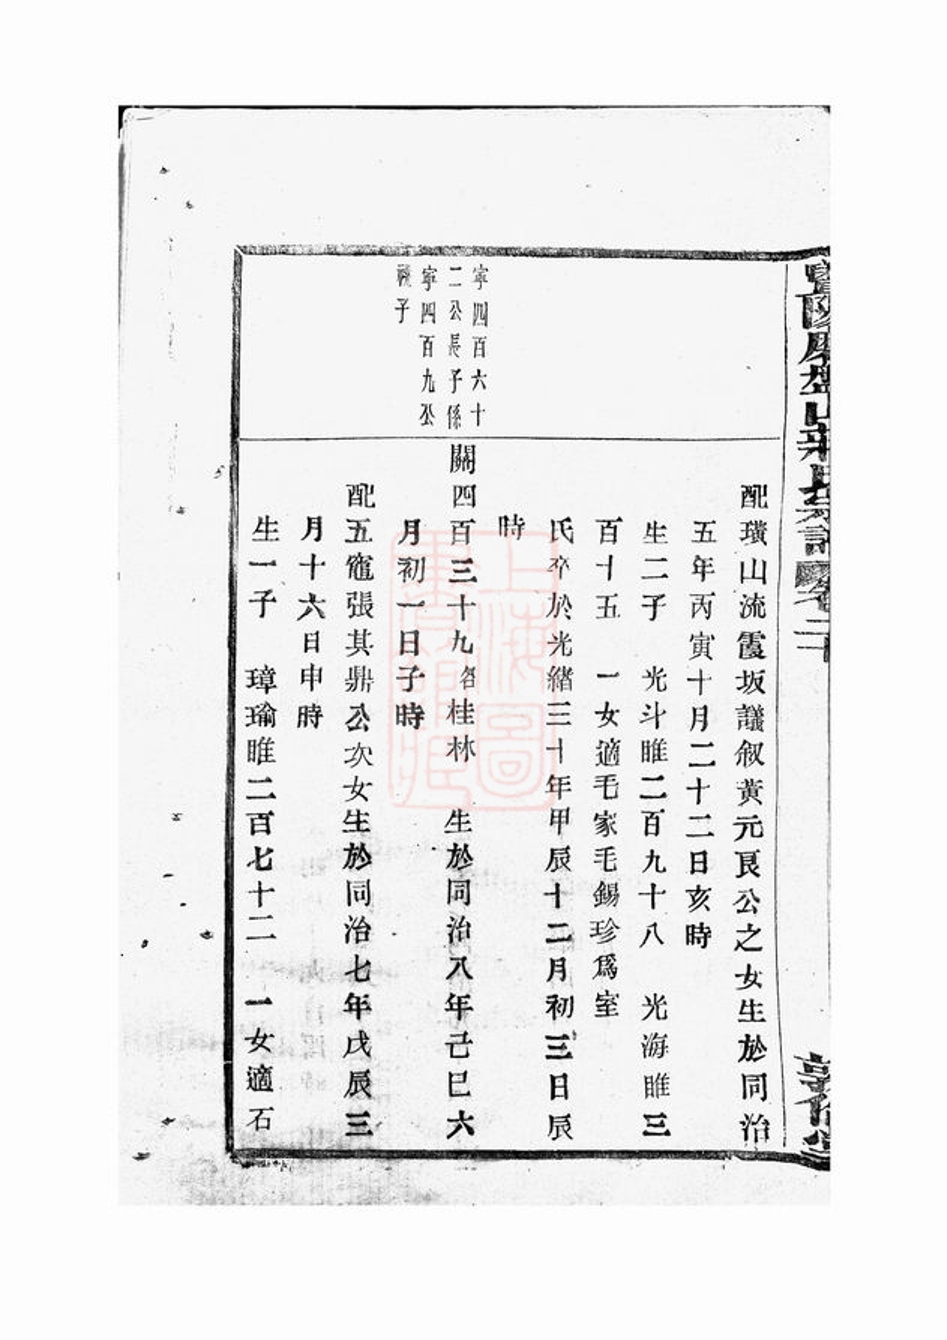 配璜山流霞坂議叙黄元良公之女生於同治
五年丙寅十月二十二日亥時
生二子 光斗睢二百九十八 光海睢三
百十五 一女適毛家毛錫珍爲室
氏卒於光緒三十年甲辰十二月初三日辰
時
寧四百六十
二公長子係
寧四百九公
子
關四百三十九名桂林 生於同治八年己巳六
月初一日子時
配五竈張其鼎公次女生於同治七年戊辰三
月十六日申時
生一子 璋瑜睢二百七十二 一女適石
上海圖
書館藏